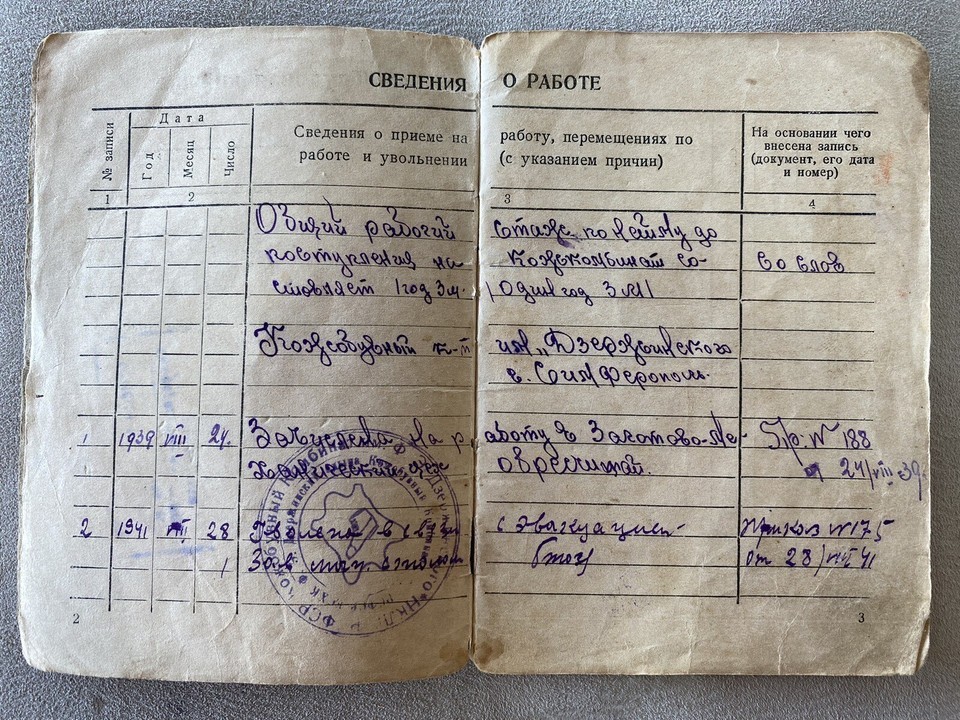 СВЕДЕНИЯ О РАБОТЕ
№ записи
Дата
Год
Месяц
Число
Сведения о приеме на работу, перемещениях по
работе и увольнении (с указанием причин)
На основании чего
внесена запись
(документ, его дата
и номер)
1 2 3 4
Общий рабочий стаж по найму до
поступления на кожкомбинат со- Со слов
ставляет 1 год 3 м. (один год 3 м)
Кожобувный к-т им. Дзержинского
г. Симферополь.
1 1939 VIII 24. Зачислена на работу в Заготово-ме-
ханический цех обрезчицей. Пр. № 188
24/VIII 39.
2 1941 28 Уволена в связи с эвакуацией Приказ № 175
Зав от 28/ 41
2
3